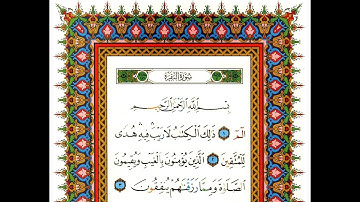 سُورَةُ البَقَرَةِ
بِسْمِ اللَّهِ الرَّحْمَٰنِ الرَّحِيمِ
الٓمٓ ١ ذَٰلِكَ الْكِتَٰبُ لَا رَيْبَ فِيهِ هُدًى
لِلْمُتَّقِينَ ٢ الَّذِينَ يُؤْمِنُونَ بِالْغَيْبِ وَيُقِيمُونَ
الصَّلَوٰةَ وَمِمَّا رَزَقْنَٰهُمْ يُنفِقُونَ ٣